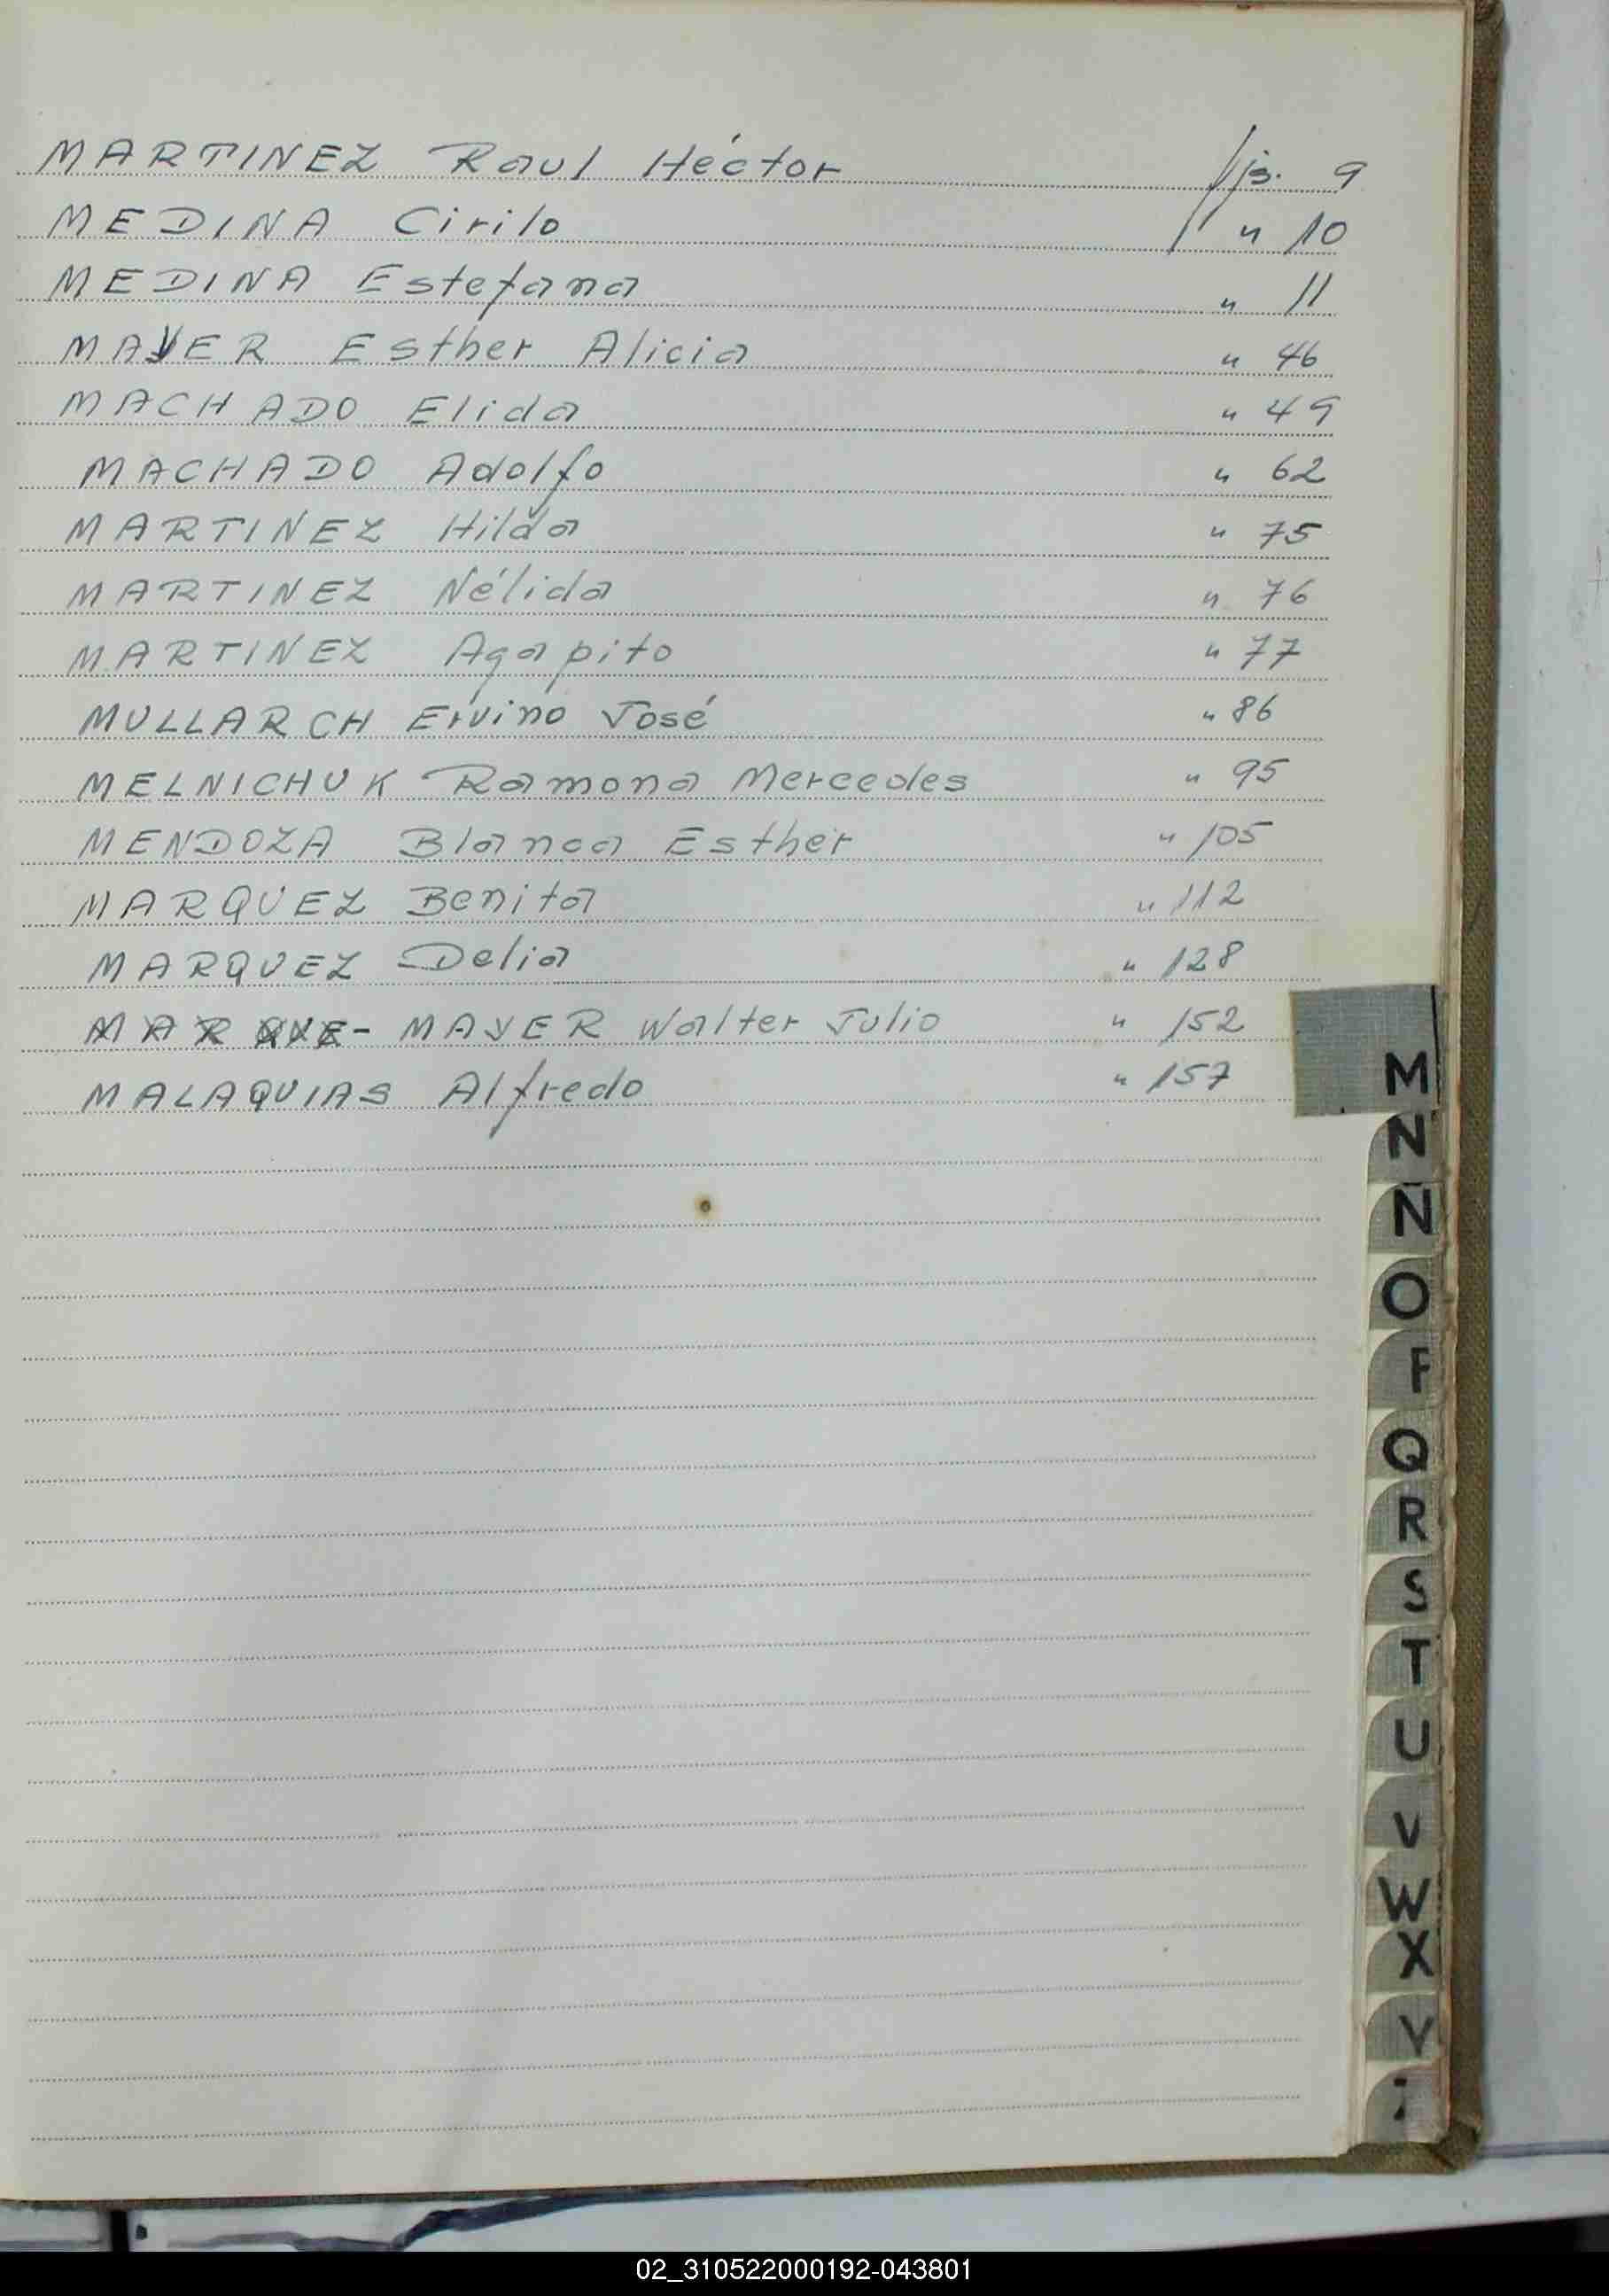 MARTINEZ Raul Héctor fjs. 9
MEDINA Cirilo " 10
MEDINA Estefana " 11
MAYER Esther Alicia " 46
MACHADO Elida " 49
MACHADO Adolfo " 62
MARTINEZ Hilda " 75
MARTINEZ Nélida " 76
MARTINEZ Agapito " 77
MULLARCH Ervino José " 86
MELNICHUK Ramona Mercedes " 95
MENDOZA Blanca Esther " 105
MARQUEZ Benita " 112
MARQUEZ Delia " 128
MARQUE- MAYER Walter Julio " 152
MALAQUIAS Alfredo " 157
M
N
Ñ
O
P
Q
R
S
T
U
V
W
X
Y
Z
02_310522000192-043801